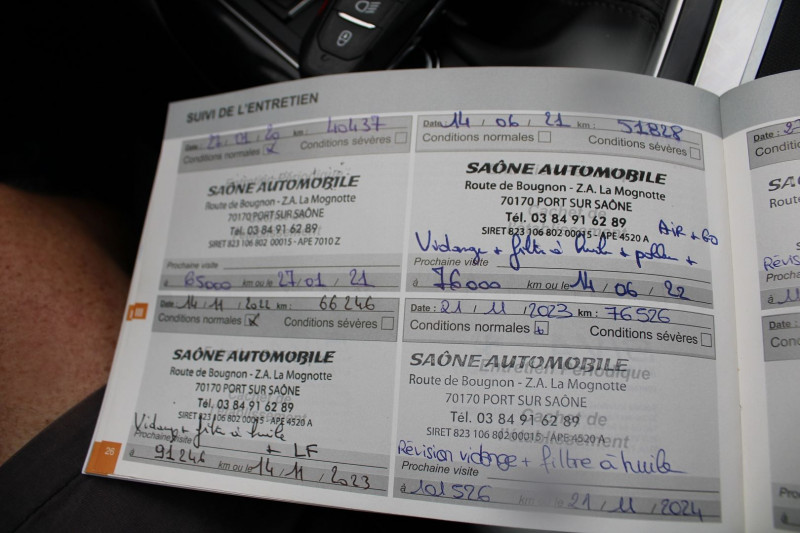 SUIVI DE L'ENTRETIEN
Date : 27 / 01 / 20 km : 40437
Conditions normales Conditions sévères
SAÔNE AUTOMOBILE
Route de Bougnon - Z.A. La Mognotte
70170 PORT SUR SAÔNE
Tél. 03 84 91 62 89
SIRET 823 106 802 00015 - APE 7010 Z
Prochaine visite
à 65000 km ou le 27/01/21
Date 14 / 06 / 21 km : 51828
Conditions normales Conditions sévères
SAÔNE AUTOMOBILE
Route de Bougnon - Z.A. La Mognotte
70170 PORT SUR SAÔNE
Tél. 03 84 91 62 89
SIRET 823 106 802 00015 - APE 4520 A
AiR + GO
Vidange + filtre à huile + pollen +
Prochaine visite
à 76000 km ou le 14 / 06 / 22
Date : 14 / 11 / 2022 km : 66246
Conditions normales Conditions sévères
SAÔNE AUTOMOBILE
Route de Bougnon - Z.A. La Mognotte
70170 PORT SUR SAÔNE
Tél. 03 84 91 62 89
SIRET 823 106 802 00015 - APE 4520 A
Vidange + filtre à huile
Prochaine visite + LF
à 91246 km ou le 14 / 11 / 2023
26
Date : 21 / 11 / 2023 km : 76526
Conditions normales Conditions sévères
Entretien Périodique
SAÔNE AUTOMOBILE
Route de Bougnon - Z.A. La Mognotte
70170 PORT SUR SAÔNE
Cachet de
Tél. 03 84 91 62 89
SIRET 823 106 802 00015 - APE 4520 A
Révision vidange + filtre à huile
Prochaine visite
à 101526 km ou le 21 / 11 / 2024
Date : 2
Conditi
SA
Route
Révisio
Prochaine
à 11
Date : 2
Conditio